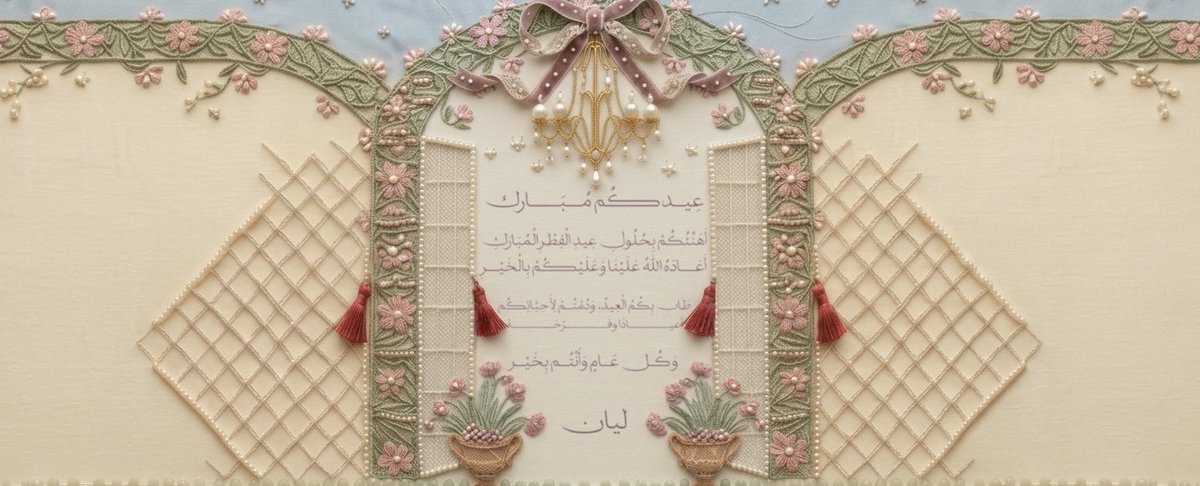 عِيدكُم مُبَارك
أُهَنِّئُكُمْ بِحُلُولِ عِيدِ الْفِطْرِ الْمُبَارَكِ
أَعَادَهُ اللهُ عَلَيْنَا وَعَلَيْكُمْ بِالْخَيْرِ
طَابَ بِكُمُ الْعِيدُ، وَدُمْتُمْ لِأَحِبَّائِكُم
عِيَادًا وَفَرَحًا
وَكُل عَامٍ وَأَنْتُم بِخَيْر
ليان